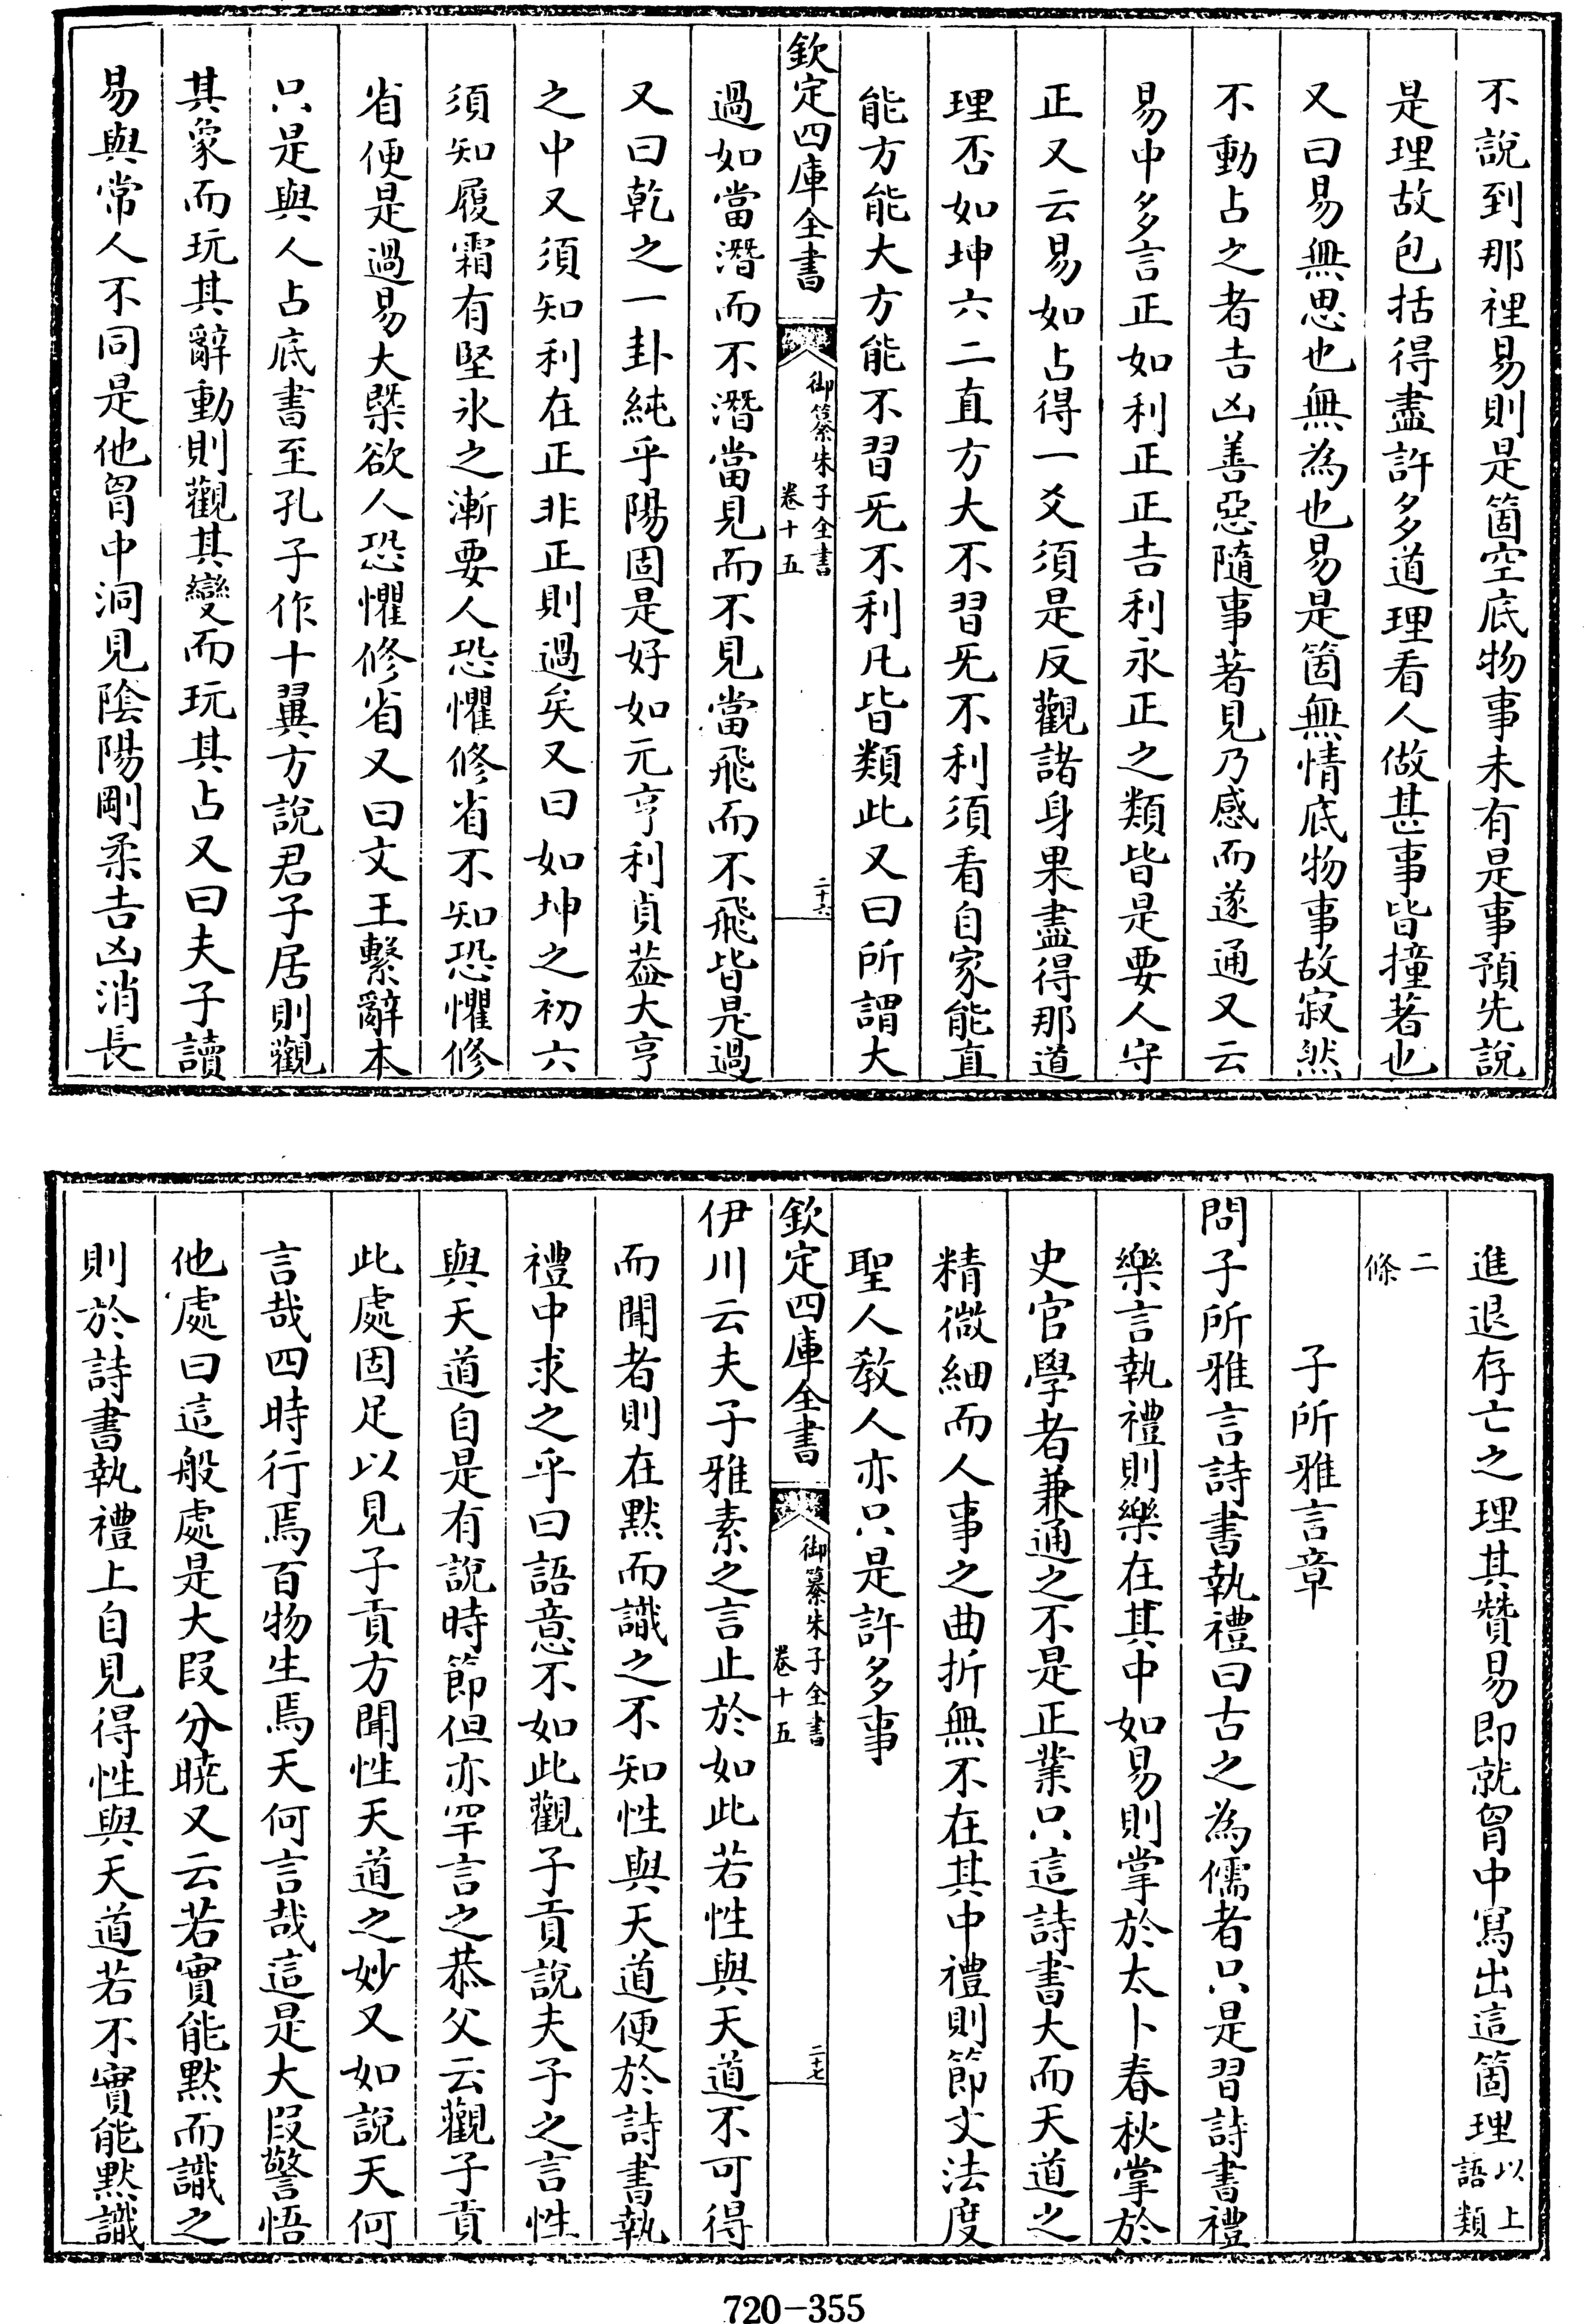 不說到那裡易則是箇空底物事未有是事預先說
是理故包括得盡許多道理看人做甚事皆撞著也
又曰易無思也無為也易是箇無情底物事故寂然
不動占之者吉凶善惡隨事著見乃感而遂通又云
易中多言正如利正正吉利永正之類皆是要人守
正又云易如占得一爻須是反觀諸身果盡得那道
理否如坤六二直方大不習旡不利須看自家能直
能方能大方能不習旡不利凡皆類此又曰所謂大
欽定四庫全書
御纂朱子全書
卷十五
二十六
過如當潛而不潛當見而不見當飛而不飛皆是過
又曰乾之一卦純乎陽固是好如元亨利貞葢大亨
之中又須知利在正非正則過矣又曰如坤之初六
須知履霜有堅氷之漸要人恐懼修省不知恐懼修
省便是過易大槩欲人恐懼修省又曰文王繫辭本
只是與人占底書至孔子作十翼方說君子居則觀
其象而玩其辭動則觀其變而玩其占又曰夫子讀
易與常人不同是他胷中洞見陰陽剛柔吉凶消長
進退存亡之理其贊易即就胷中寫出這箇理以上語類
二條
子所雅言章
問子所雅言詩書執禮曰古之為儒者只是習詩書禮
樂言執禮則樂在其中如易則掌於太卜春秋掌於
史官學者兼通之不是正業只這詩書大而天道之
精微細而人事之曲折無不在其中禮則節文法度
聖人教人亦只是許多事
欽定四庫全書
御纂朱子全書
卷十五
二十七
伊川云夫子雅素之言止於如此若性與天道不可得
而聞者則在默而識之不知性與天道便於詩書執
禮中求之乎曰語意不如此觀子貢說夫子之言性
與天道自是有說時節但亦罕言之恭父云觀子貢
此處固足以見子貢方聞性天道之妙又如說天何
言哉四時行焉百物生焉天何言哉這是大段警悟
他處曰這般處是大段分曉又云若實能默而識之
則於詩書執禮上自見得性與天道若不實能默識
720-355